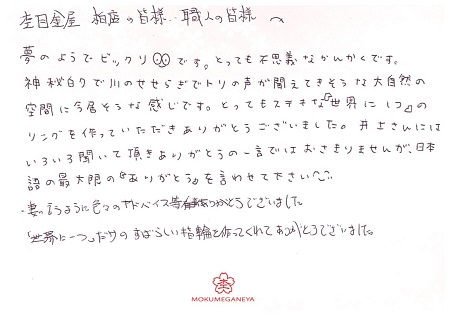 杢目金屋 柏店の皆様、職人の皆様へ
夢のようでビックリです。とっても不思義なかんかくです。
神秘自クで川のせせらぎでトリの声が聞えてきそうな大自然の
空間に今居そうな感じです。とってもステキな『世界に1つ』の
リングを作っていただきありがとうございました。井上さんには
いろいろ聞いて頂きありがとうの一言ではおさまりませんが、日本
語の最大限の『ありがとう』を言わせて下さい
・妻が言うように色々のアドバイス等ありがとうございました。
「世界に一つ」だけのすばらしい指輪を作ってくれてありがとうございました。
MOKUMEGANEYA